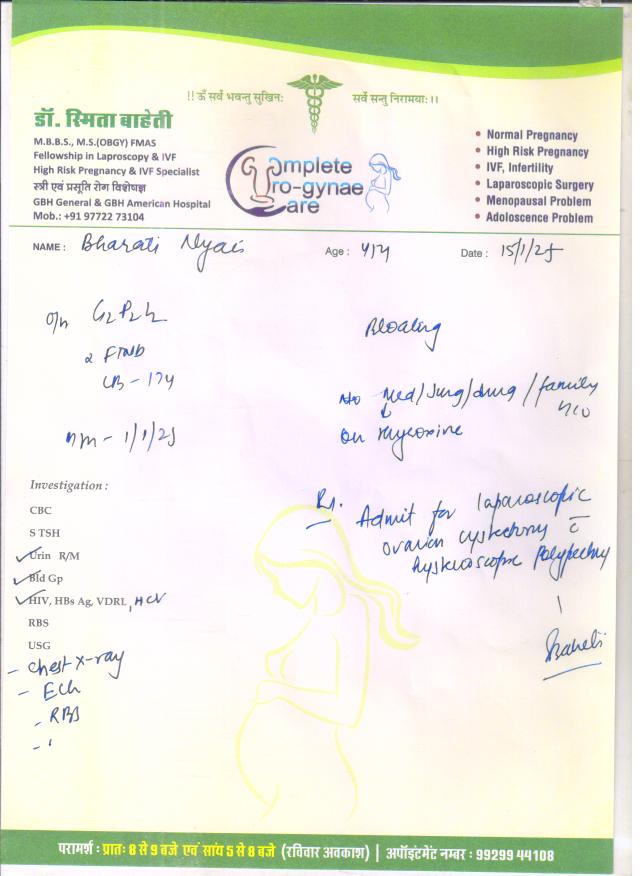 !! ॐ सर्वे भवन्तु सुखिनः सर्वे सन्तु निरामयाः।।
डॉ. स्मिता बाहेती
M.B.B.S., M.S.(OBGY) FMAS
Fellowship in Laproscopy & IVF
High Risk Pregnancy & IVF Specialist
स्त्री एवं प्रसूति रोग विशेषज्ञ
GBH General & GBH American Hospital
Mob.: +91 97722 73104
Complete
Pro-gynae
Care
• Normal Pregnancy
• High Risk Pregnancy
• IVF, Infertility
• Laparoscopic Surgery
• Menopausal Problem
• Adoloscence Problem
NAME : Bharati Age : 41y Date : 15/1/25
G2P2L2
2 FTND
LB - 17y
1/1/25
Bloating
Med/Surg/drug/family
on thyroxine
Investigation :
CBC
S TSH
Urin R/M
Bld Gp
HIV, HBs Ag, VDRL, HCV
RBS
USG
- Chest x-ray
- ECG
- RBS
Rx. Admit for laparoscopic
ovarian cystectomy c̄
hysteroscopic polypectomy
Baheti
परामर्श : प्रातः 8 से 9 बजे एवं सांय 5 से 8 बजे (रविवार अवकाश) | अपॉइंटमेंट नम्बर : 99299 44108